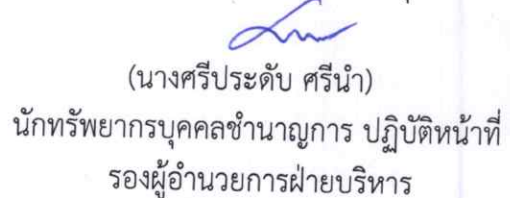 (นางศรีประดับ ศรีนำ)
นักทรัพยากรบุคคลชำนาญการ ปฏิบัติหน้าที่
รองผู้อำนวยการฝ่ายบริหาร